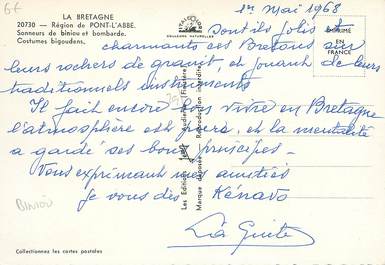 6€
LA BRETAGNE
20730 — Région de PONT-L'ABBÉ.
Sonneurs de biniou et bombarde.
Costumes bigoudens.
COULEURS NATURELLES
IMPRIMÉ
EN
FRANCE
1er Mai 1968
Sont ils jolis et
charmants ces Bretons sur
leurs rochers de granit, et jouant de leurs
traditionnels instruments
Il fait encore bon vivre en Bretagne
l'atmosphère est pure, et la mentalité
a gardé ses bons principes -
Vous exprimant mes amitiés
je vous dis Kénavo
La Guite
BINIOU
Les Editions
Marque déposée
Reproduction interdite
Collectionnez les cartes postales